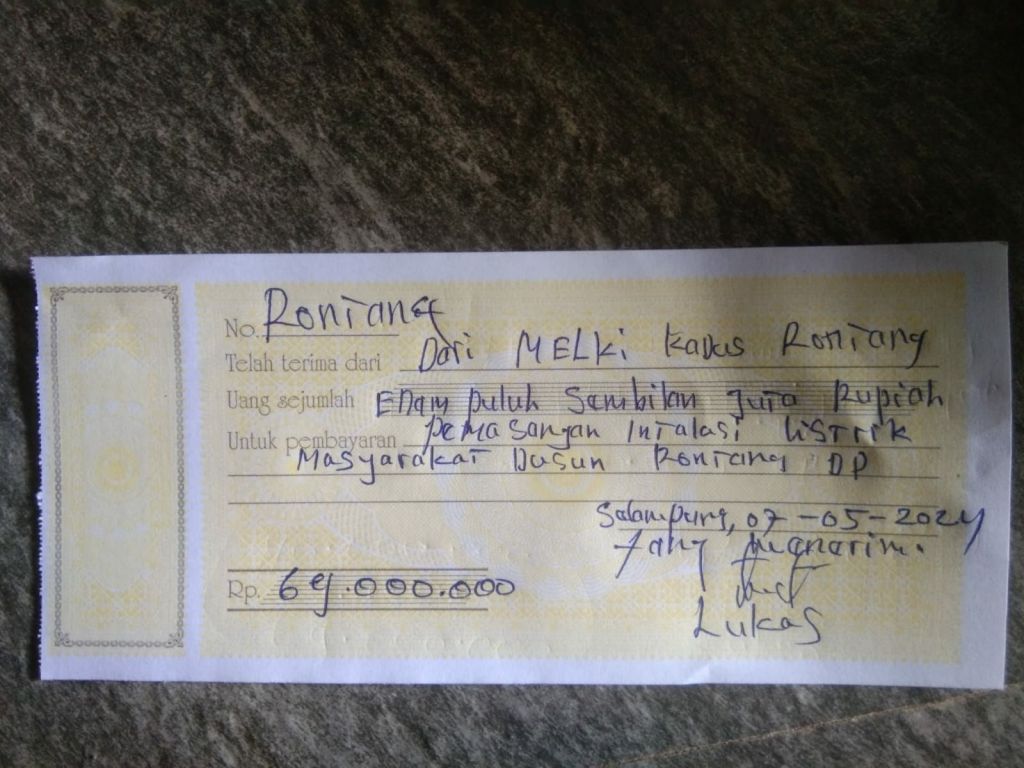 No. Rontang
Telah terima dari Dari MELKi Kadus Rontang
Uang sejumlah Enam puluh Sembilan Juta Rupiah
Untuk pembayaran pemasangan Intalasi Listrik
Masyarakat Dusun Rontang DP
Salampung, 07-05-2024
Yang menerima.
Rp. 69.000.000
Lukas